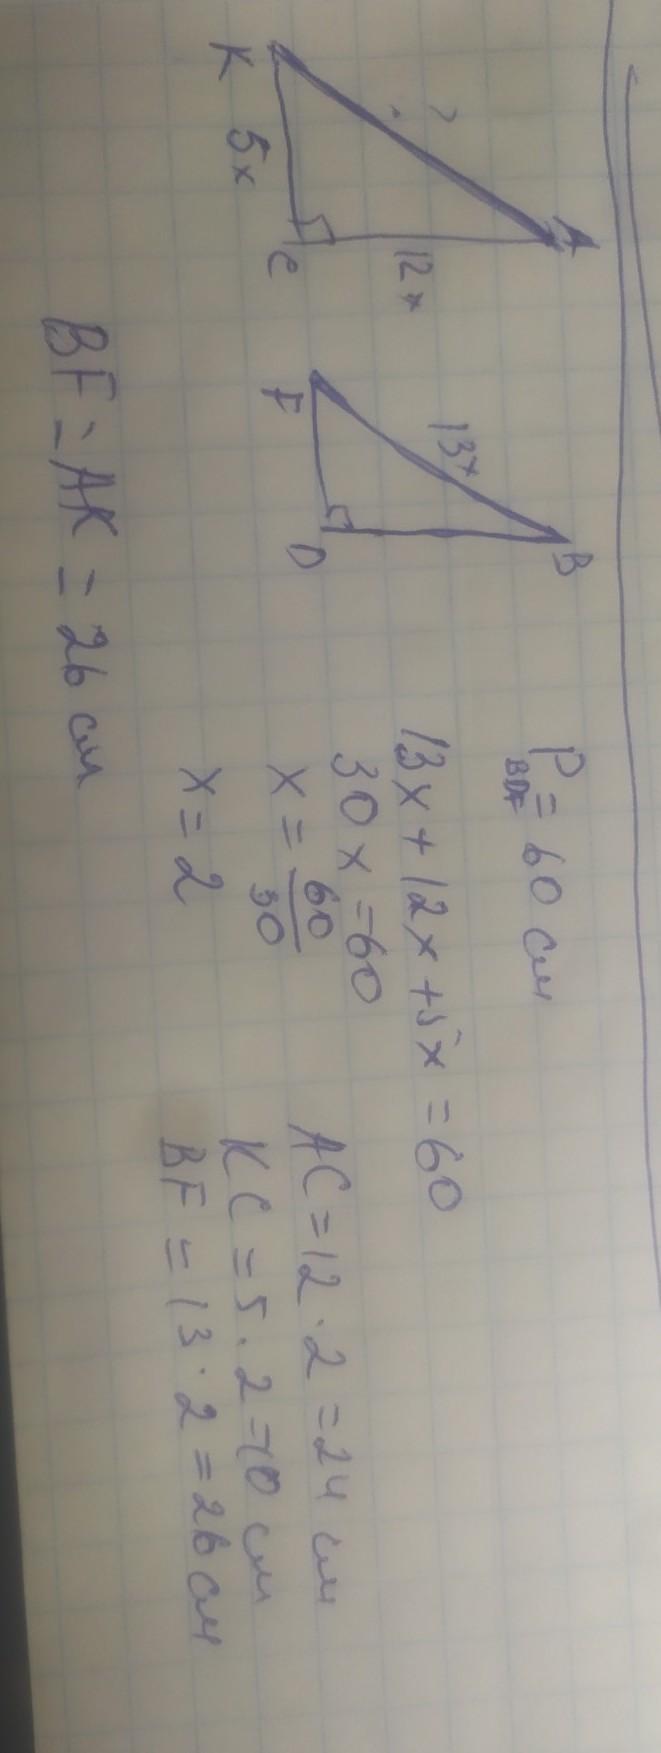 A
K
5x
C
12x
?
B
F
D
13x
P BDF = 60 см
13x + 12x + 5x = 60
30x = 60
x = 60/30
x = 2
AC = 12 · 2 = 24 см
KC = 5 · 2 = 10 см
BF = 13 · 2 = 26 см
BF = AK = 26 см